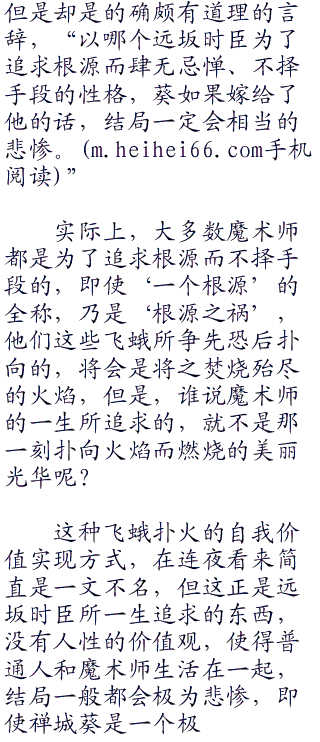 但是却是的确颇有道理的言
辞，“以哪个远坂时臣为了
追求根源而肆无忌惮、不择
手段的性格，葵如果嫁给了
他的话，结局一定会相当的
悲惨。(m.heihei66.com手机
阅读)”
实际上，大多数魔术师
都是为了追求根源而不择手
段的，即使‘一个根源’的
全称，乃是‘根源之祸’，
他们这些飞蛾所争先恐后扑
向的，将会是将之焚烧殆尽
的火焰，但是，谁说魔术师
的一生所追求的，就不是那
一刻扑向火焰而燃烧的美丽
光华呢？
这种飞蛾扑火的自我价
值实现方式，在连夜看来简
直是一文不名，但这正是远
坂时臣所一生追求的东西，
没有人性的价值观，使得普
通人和魔术师生活在一起，
结局一般都会极为悲惨，即
使禅城葵是一个极